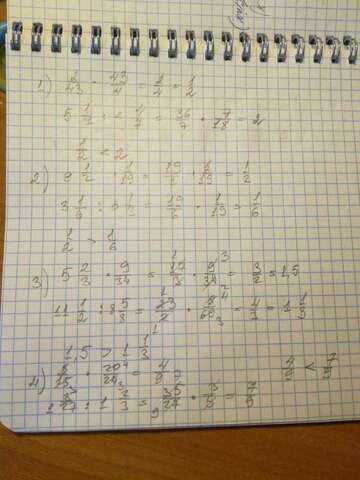 1) 2/43 · 43/4 = 2/4 = 1/2
5 1/7 : 2 4/7 = 36/7 · 7/18 = 2
1/2 < 2
2) 9 1/2 · 1/19 = 19/2 · 1/19 = 1/2
3 1/6 : = 19/6 · 1/19 = 1/6
1/2 > 1/6
3) 5 2/3 · 9/34 = 17/3 · 9/34 = 3/2 = 1,5
11 1/2 : 8 5/8 = 23/2 · 8/69 = 4/3 = 1 1/3
1,5 > 1 1/3
4) · = 4/9
1 8/27 : 1 2/3 = 35/27 · 3/5 = 7/9
4/9 < 7/9